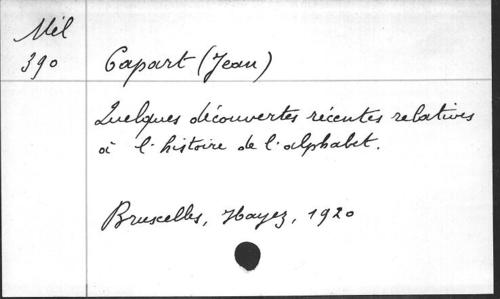 Mél
390
Capart (Jean)
Quelques découvertes récentes relatives
à l'histoire de l'alphabet.
Bruxelles, Hayez, 1920